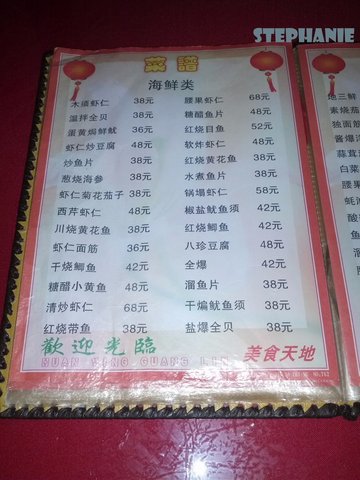 STEPHANIE
菜譜
海鲜类
木须虾仁 38元 腰果虾仁 68元
温拌全贝 38元 糖醋鱼片 48元
蛋黄焗鲜鱿 36元 红烧目鱼 52元
虾仁炒豆腐 48元 软炸虾仁 48元
炒鱼片 38元 红烧黄花鱼 38元
葱烧海参 38元 水煮鱼片 38元
虾仁菊花茄子 38元 锅塌虾仁 48元
西芹虾仁 48元 椒盐鱿鱼须 42元
川烧黄花鱼 38元 红烧鲫鱼 42元
虾仁面筋 36元 八珍豆腐 48元
干烧鲫鱼 42元 全爆 42元
糖醋小黄鱼 48元 溜鱼片 38元
清炒虾仁 68元 干煸鱿鱼须 48元
红烧带鱼 38元 盐爆全贝 38元
歡迎光臨
HUAN YING GUANG LIN
美食天地
地三鲜
素烧茄
独面筋
酱爆
蒜茸
白菜
腰果
蚝油